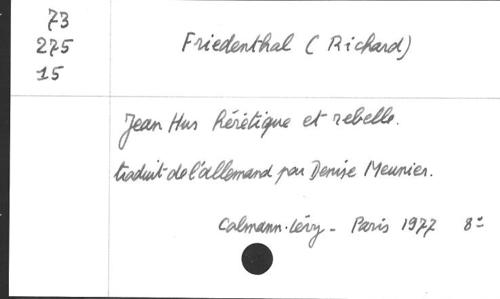 73
275
15
Friedenthal (Richard)
Jean Hus hérétique et rebelle.
traduit de l'allemand par Denise Meunier.
Calmann-Lévy - Paris 1977 8°